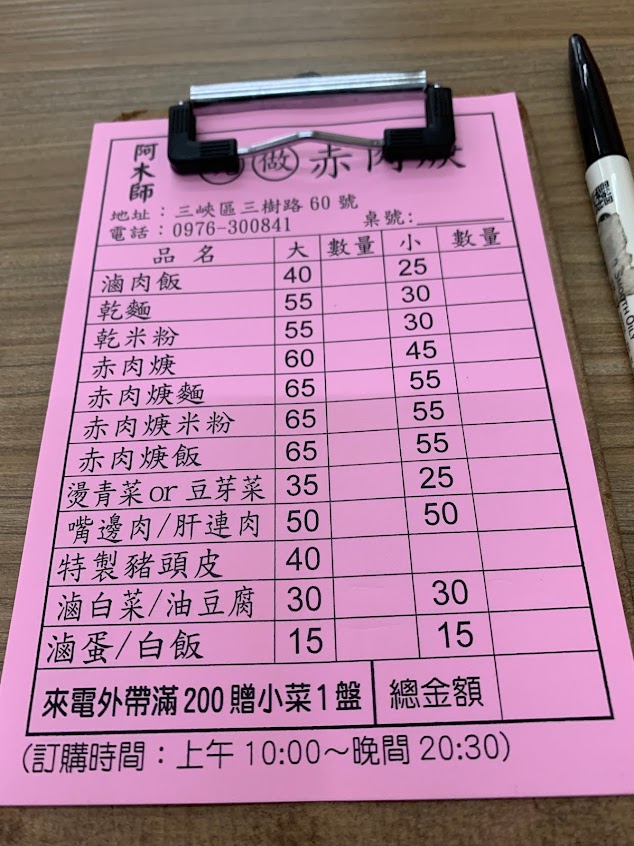 阿木師
做 赤肉羹
地址：三峽區三樹路 60 號
電話：0976-300841 桌號:
品名 大 數量 小 數量
滷肉飯 40 25
乾麵 55 30
乾米粉 55 30
赤肉焿 60 45
赤肉焿麵 65 55
赤肉焿米粉 65 55
赤肉焿飯 65 55
燙青菜or豆芽菜 35 25
嘴邊肉/肝連肉 50 50
特製豬頭皮 40
滷白菜/油豆腐 30 30
滷蛋/白飯 15 15
來電外帶滿200贈小菜1盤 總金額
(訂購時間：上午10:00～晚間20:30)
SMOOTH OILY